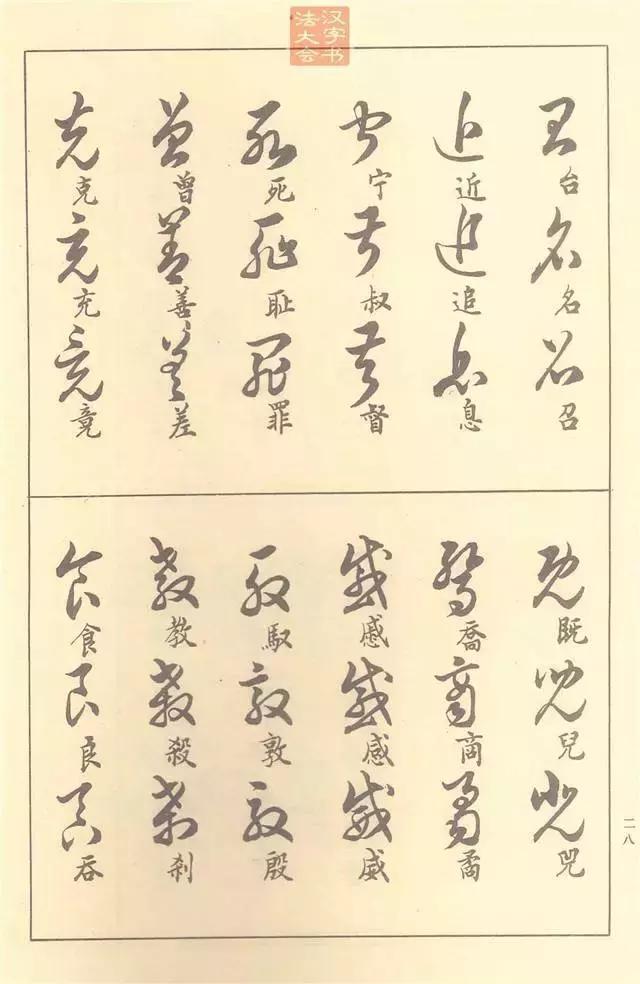 汉字书
法大会
台 名 召
近 追 息
宁 叔 督
死 耻 罪
曾 善 差
克 充 竟
既 兒 兕
喬 商 矞
戚 感 威
馭 敦 殷
教 殺 刹
食 良 吞
二八